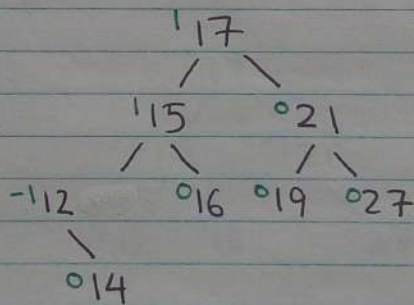 1 17
1 15 0 21
-1 12 0 16 0 19 0 27
0 14